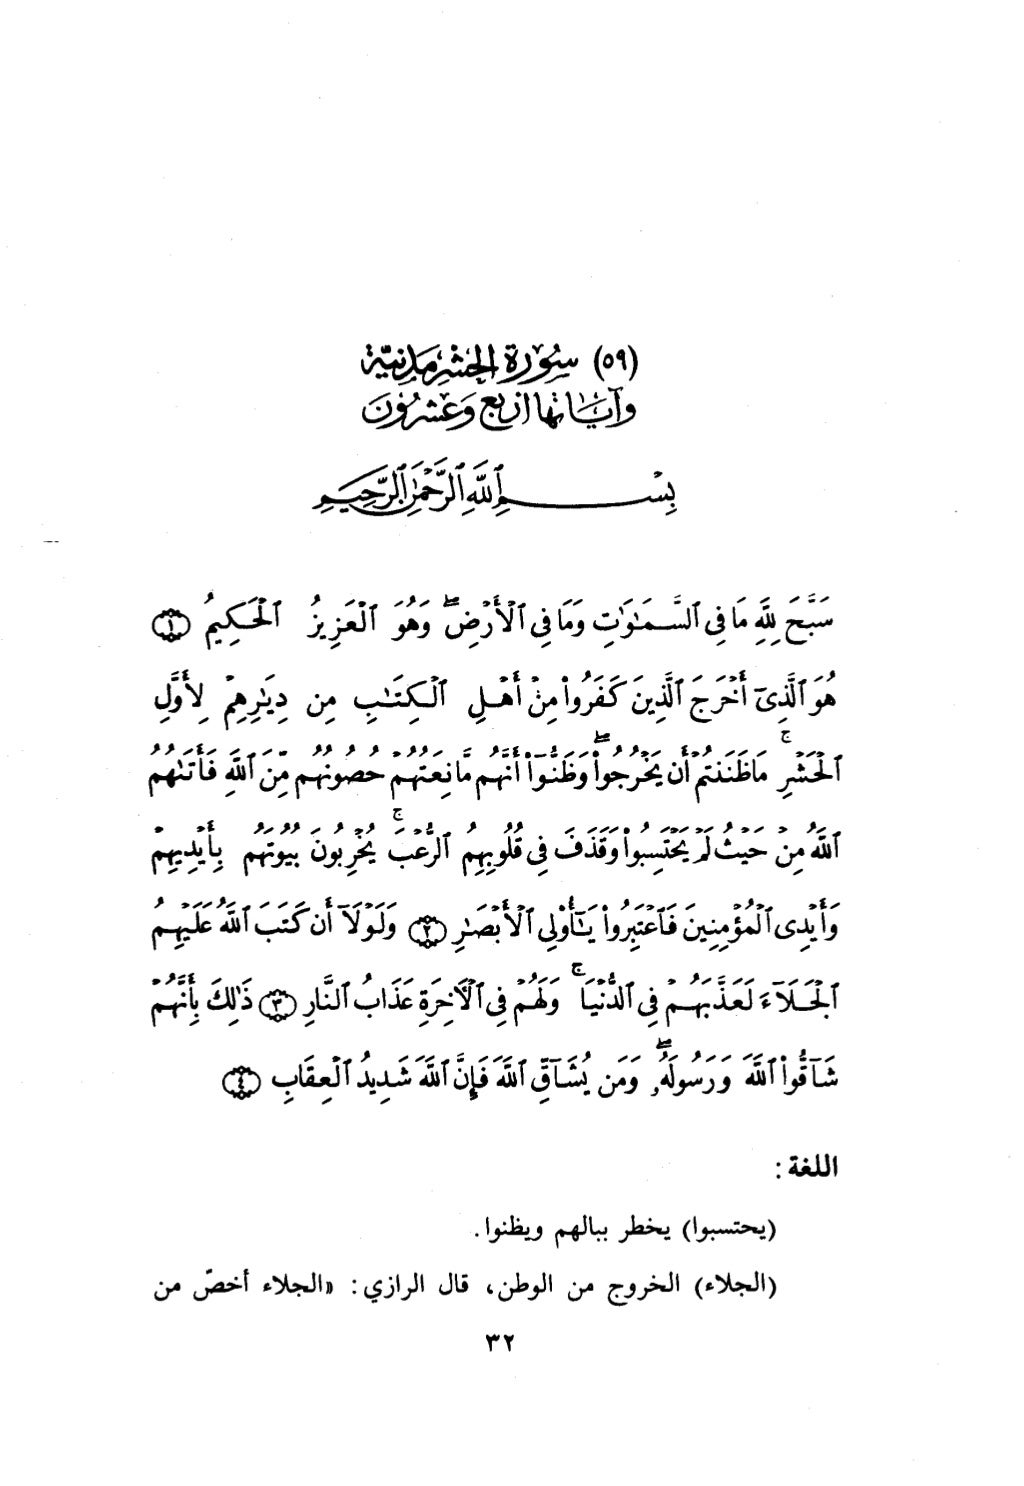 (٥٩) سُورَة الحَشْر مَدَنِيَّة
وَآيَاتُهَا أَرْبَع وَعِشْرُونَ
بِسْمِ ٱللَّهِ ٱلرَّحْمَٰنِ ٱلرَّحِيمِ
سَبَّحَ لِلَّهِ مَا فِي ٱلسَّمَٰوَٰتِ وَمَا فِي ٱلْأَرْضِۖ وَهُوَ ٱلْعَزِيزُ ٱلْحَكِيمُ ١
هُوَ ٱلَّذِيٓ أَخْرَجَ ٱلَّذِينَ كَفَرُوا۟ مِنْ أَهْلِ ٱلْكِتَٰبِ مِن دِيَٰرِهِمْ لِأَوَّلِ
ٱلْحَشْرِۚ مَا ظَنَنتُمْ أَن يَخْرُجُوا۟ۖ وَظَنُّوٓا۟ أَنَّهُم مَّانِعَتُهُمْ حُصُونُهُم مِّنَ ٱللَّهِ فَأَتَىٰهُمُ
ٱللَّهُ مِنْ حَيْثُ لَمْ يَحْتَسِبُوا۟ وَقَذَفَ فِي قُلُوبِهِمُ ٱلرُّعْبَۚ يُخْرِبُونَ بُيُوتَهُم بِأَيْدِيهِمْ
وَأَيْدِي ٱلْمُؤْمِنِينَ فَٱعْتَبِرُوا۟ يَٰٓأُو۟لِي ٱلْأَبْصَٰرِ ٢ وَلَوْلَآ أَن كَتَبَ ٱللَّهُ عَلَيْهِمُ
ٱلْجَلَآءَ لَعَذَّبَهُمْ فِي ٱلدُّنْيَاۚ وَلَهُمْ فِي ٱلْآخِرَةِ عَذَابُ ٱلنَّارِ ٣ ذَٰلِكَ بِأَنَّهُمْ
شَآقُّوا۟ ٱللَّهَ وَرَسُولَهُۥۖ وَمَن يُشَآقِّ ٱللَّهَ فَإِنَّ ٱللَّهَ شَدِيدُ ٱلْعِقَابِ ٤
اللغة :
(يحتسبوا) يخطر ببالهم ويظنوا.
(الجلاء) الخروج من الوطن، قال الرازي: «الجلاء أخصّ من
٣٢